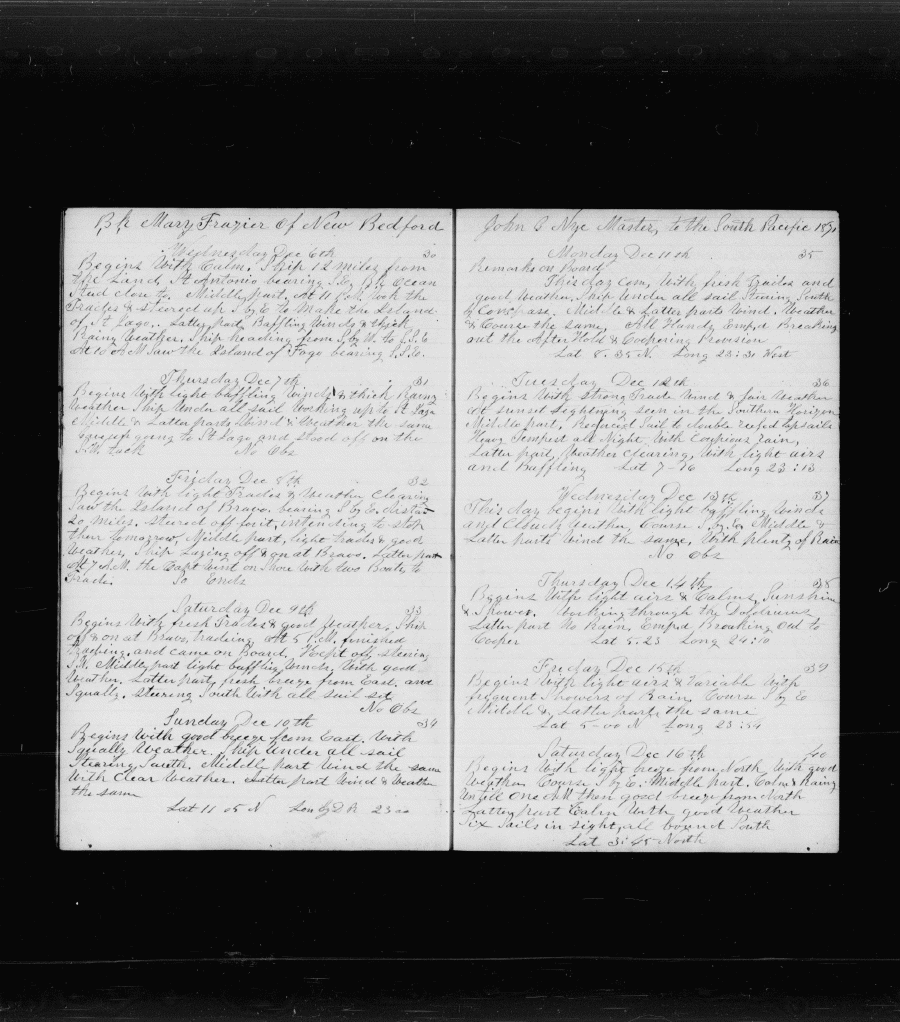 Bk Mary Frazier of New Bedford
Wednesday Dec 6th 30
Begins With Calm, Ship 12 miles from
the Land, St Antonio bearing S.E., Ocean
Stud close to. Middle part, At 11 P.M. Took the
Trades & steered up S by E to Make the Island
of St Jago. Latter part Baffling Winds & thick
Rainy Weather. Ship heading from S by W. to S.S.E
At 10 AM Saw the Island of Fogo bearing S.S.E.
Thursday Dec 7th 31
Begins With light baffling Winds & thick Rainy
Weather Ship Under all sail Working up to St Jago
Middle & Latter parts Wind & Weather the same
gave up going to St Jago and stood off on the
S.W. tack No Obs
Friday Dec 8th 32
Begins With light Trades & Weather Clearing
Saw the Island of Bravo bearing S by E distan
20 Miles. Steered off for it, intending to stop
their tomorrow, Middle part, light Trades & good
Weather, Ship Laying off & on at Bravo. Latter part
At 7 A.M. the Capt Went on Shore With two Boats to
Trade. So Ends
Saturday Dec 9th 33
Begins With fresh Trades & good Weather, Ship
off & on at Bravo, trading. At 5 P.M. finished
trading, and came on Board, Kept off, steering
S.W. Middle part light baffling Winds, With good
Weather. Latter part, fresh breeze from East, and
Squally, steering South With all sail set
No Obs
Sunday Dec 10th 34
Begins with good breeze from East, With
Squally Weather. Ship Under all sail
Stearing South. Middle part Wind the same
With Clear Weather. Latter part Wind & Weather
the same
Lat 11 05 N Lon by D R 23 00
John B Nye Master, to the South Pacific 1871
Monday Dec 11th 35
Remarks on Board
This day Com, With fresh Trades and
good Weather. Ship Under all sail Stering South
by Compass. Middle & Latter parts Wind, Weather
& Course the same, All Hands Empd Breaking
out the After Hold & Coopering Provision
Lat 8. 35 N Long 23:30 West
Tuesday Dec 12th 36
Begins With Strong Trade Wind & fair Weather
At sunset Lightning seen in the Southern Horizon
Middle part, Reduced Sail to double reefed topsails
Heavy Tempest all Night With Coupious rain,
Latter part, Weather clearing, With light airs
and Baffling Lat 7-16 Long 23:13
Wednesday Dec 13th 37
This day begins With light baffling Winds
and Cloudy Weather, Course S by E Middle &
Latter parts Wind the same, With plenty of Rain
No Obs
Thursday Dec 14th 38
Begins With light airs & Calms, Sunshine
& Shower. Working through the Doldrums
Latter part No Rain, Empd Breaking Out to
Cooper Lat 5.23 Long 24:10
Friday Dec 15th 39
Begins With light airs & Variable With
frequent Showers of Rain, Course S by E
Middle & Latter parts the same
Lat 5-00 N Long 23:54
Saturday Dec 16th 40
Begins With light breeze from North With good
Weather Course S by E. Middle part. Calm & Rainy
Untill One AM then good breeze from North
Latter part Calm With good Weather
Six Sails in sight, all bound South
Lat 3:45 North